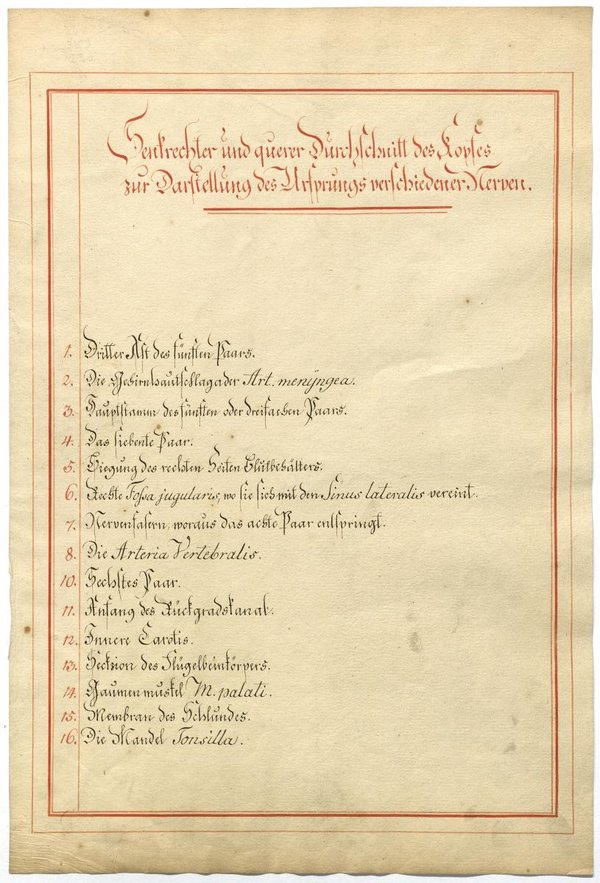 Senkrechter und querer Durchschnitt des Kopfes
zur Darstellung des Ursprungs verschiedener Nerven.
1. Dritter Ast des fünften Paars.
2. Die Gehirnhautschlagader Art. menÿngea.
3. Hauptstamm des fünften oder dreifachen Paars.
4. Das siebente Paar.
5. Biegung des rechten Seiten Blutbehälters.
6. Rechte Fossa jugularis, wo sie sich mit den Sinus lateralis vereint.
7. Nervenfasern, woraus das achte Paar entspringt.
8. Die Arteria Vertebralis.
10. Sechstes Paar.
11. Anfang des Rückgradskanal.
12. Innere Carotis.
13. Secksion des Flügelbeinkörpers.
14. Gaumenmuskel M. palati.
15. Membran des Schlundes.
16. Die Mandel Tonsilla.